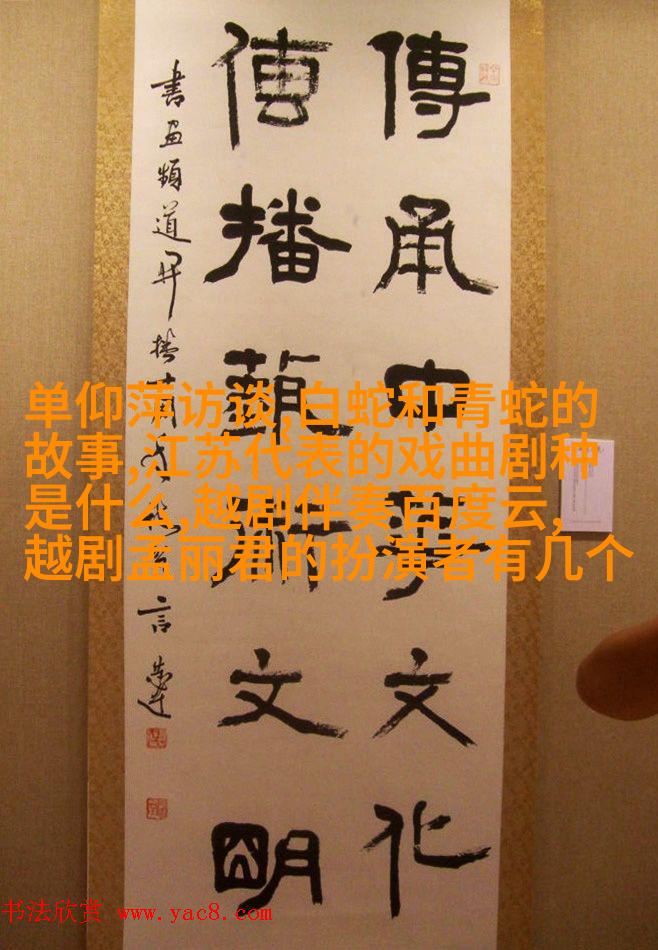 傳承中華文化
傳播藝術文明
書画頻道開播
言恭達
单仰萍访谈,白蛇和青蛇的
故事,江苏代表的戏曲剧种
是什么,越剧伴奏百度云,
越剧孟丽君的扮演者有几个
书法欣赏 www.yac8.com